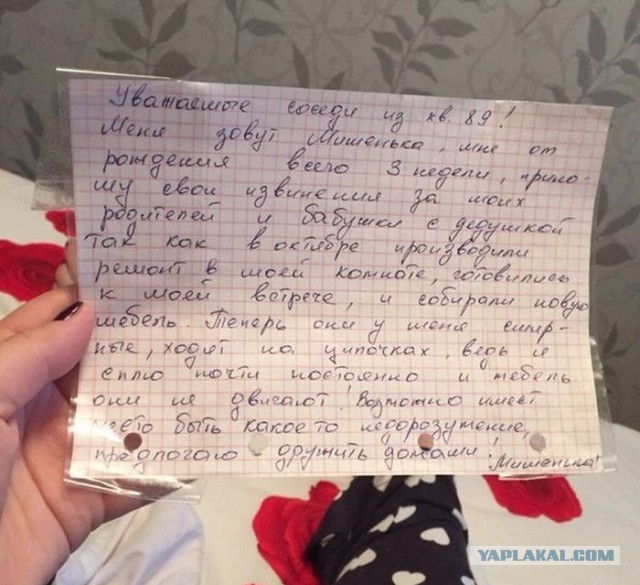 Уважаемые соседи из кв. 89!
Меня зовут Мишенька, мне от
рождения всего 3 недели, прино-
шу свои извинения за моих
родителей и бабушки с дедушкой
так как в октябре производили
ремонт в моей комноте, готовились
к моей встрече, и собирали новую
мебель. Теперь они у меня смир-
ные, ходят на ципочках, ведь я
сплю почти постоянно и мебель
они не двигают! Возможно имеет
место быть какое то недорозумение,
предлогаю дружить домами!
"Мишенька"
YAPLAKAL.COM